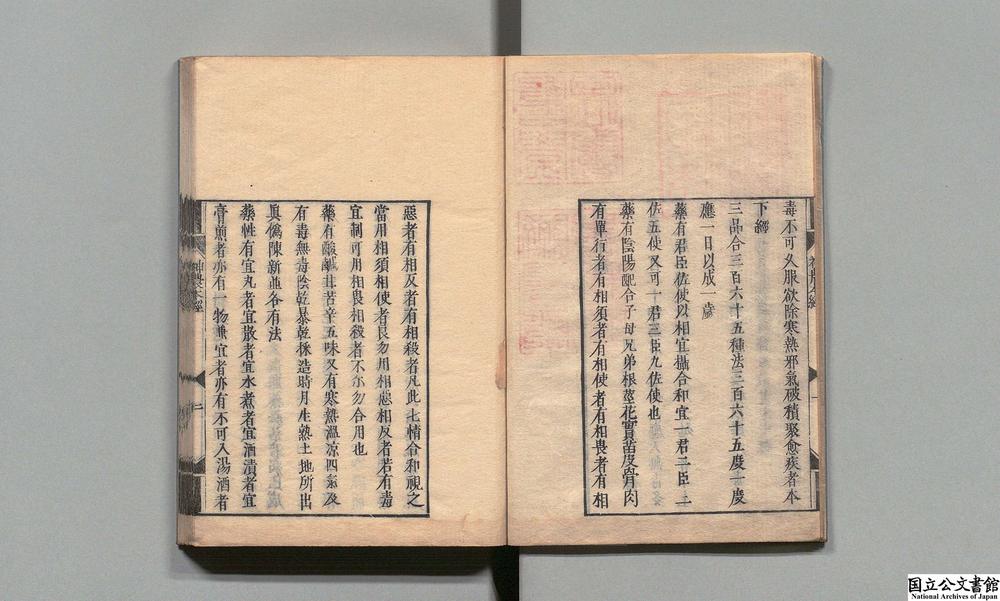 毒不可久服欲除寒熱邪氣破積聚愈疾者本
下經
三品合三百六十五種法三百六十五度一度
應一日以成一歲
藥有君臣佐使以相宜攝合和宜一君二臣三
佐五使又可一君三臣九佐使也
藥有陰陽配合子母兄弟根莖花實苗皮骨肉
有單行者有相須者有相使者有相畏者有相
惡者有相反者有相殺者凡此七情合和視之
當用相須相使者良勿用相惡相反者若有毒
宜制可用相畏相殺者不亦勿合用也
藥有酸鹹甘苦辛五味又有寒熱溫涼四氣及
有毒無毒陰乾暴乾採造時月生熟土地所出
眞僞陳新並各有法
藥性有宜丸者宜散者宜水煮者宜酒漬者宜
膏煎者亦有一物兼宜者亦有不可入湯酒者
神農本經
二
国立公文書館
National Archives of Japan